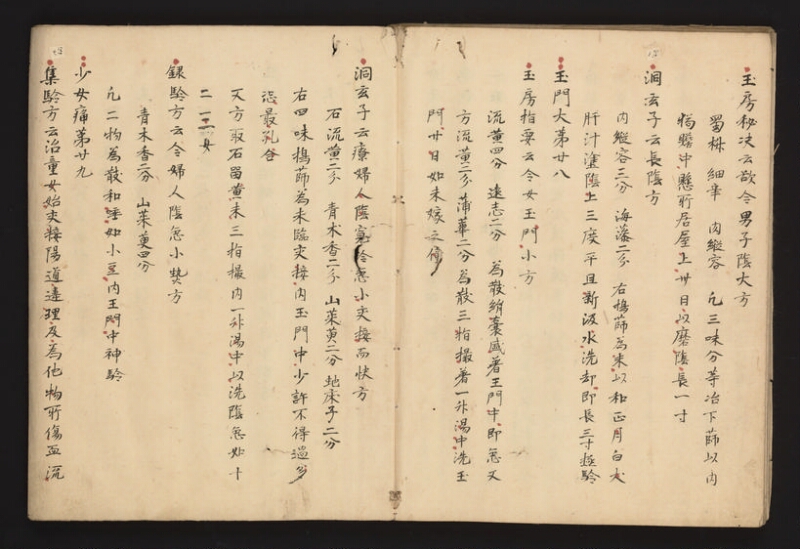 玉房秘决云欲令男子陰大方
蜀椒 細辛 肉縱容 凡三味分等冶下篩以内
狗膽中懸所居屋上卅日以磨陰長一寸
洞玄子云長陰方
肉縱容三分 海藻二分 右搗篩為末以和正月白犬
肝汁塗陰上三度平旦新汲水洗却即長三寸極驗
玉門大苐廿八
玉房指要云令女玉門小方
流黄四分 遠志二分 為散絹囊盛著玉門中即急又
方流黄二分蒲華二分為散三指撮著一升湯中洗玉
門廿日如未嫁之僮
洞玄子云療婦人陰寬冷急小交接而快方
石流黄二分 青木香二分 山茱萸二分 地床子二分
右四味搗篩為末臨交接内玉門中少許不得過多
恐最孔合
又方取石留黄末三指撮内一升湯中以洗陰急如十
二三女
録驗方云令婦人陰急小熱方
青木香二分 山茱萸四分
凡二物為散和唾如小豆内玉門中神驗
少女痛苐廿九
集驗方云治童女始交接陽道違理及為他物所傷血流